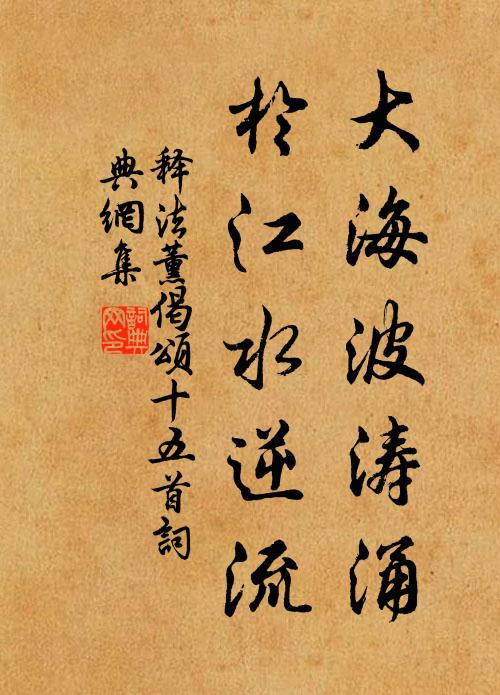 大海波涛涌
於江水逆流
释法薰偈頌十五首詞
典網集
詞典网印